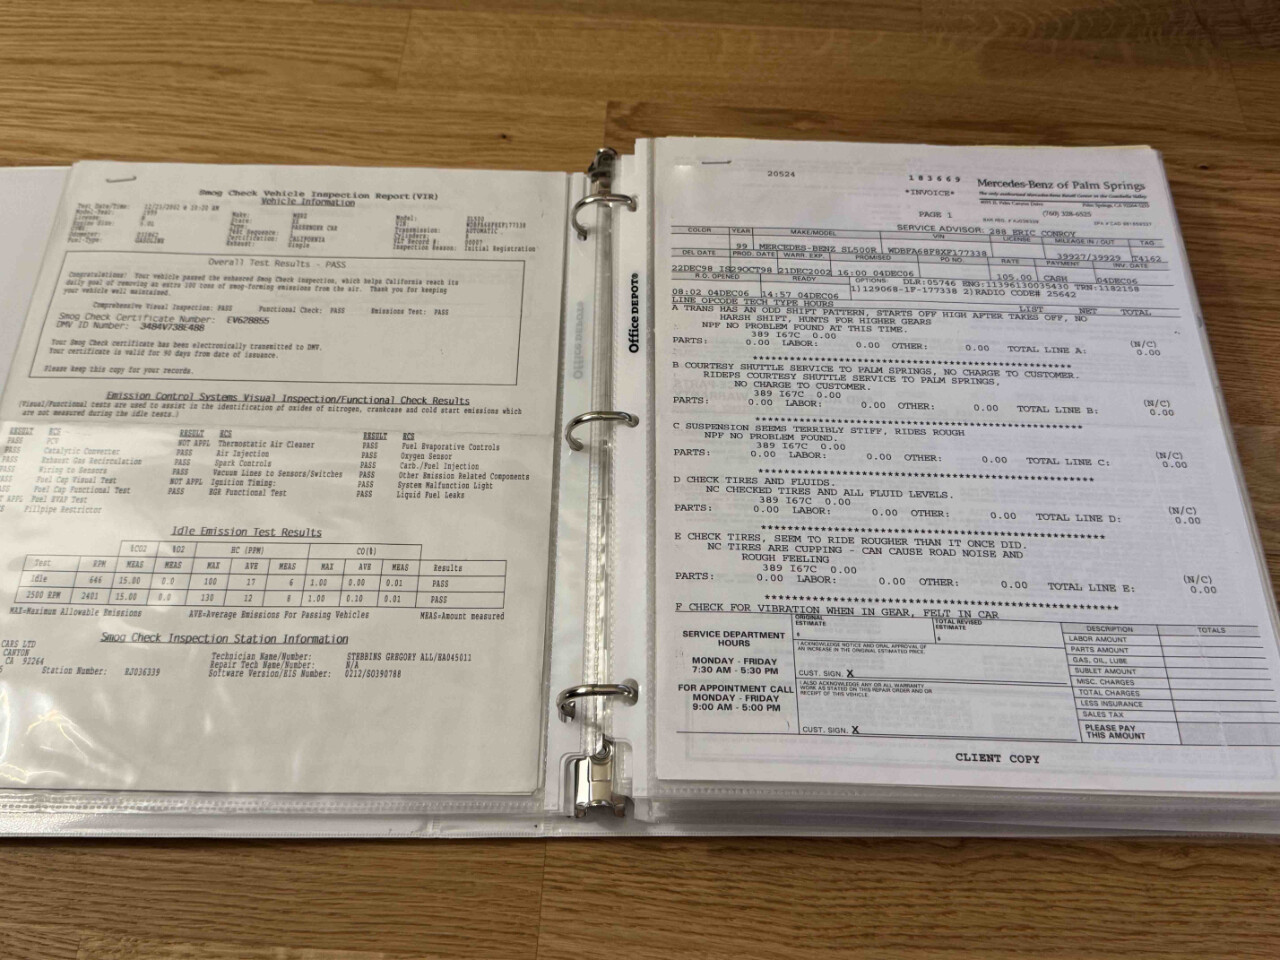 Smog Check Vehicle Inspection Report (VIR)
Vehicle Information
Test Date/Time: 12/21/2002 @ 10:20 AM
Model-Year: 1999
License:
Engine Size: 5.0L
Odometer:
Fuel-Type: GASOLINE
Make: MERZ
State:
Type: PASSENGER CAR
Test Sequence:
Certification: CALIFORNIA
Exhaust: Single
Model: SL500
VIN:
Transmission: AUTOMATIC
Cylinders: 8
Inspection Reason: Initial Registration
Overall Test Results - PASS
Congratulations! Your vehicle passed the enhanced Smog Check inspection, which helps California reach its
daily goal of removing an extra 100 tons of smog-forming emissions from the air. Thank you for keeping
your vehicle well maintained.
Comprehensive Visual Inspection: PASS Functional Check: PASS Emissions Test: PASS
Smog Check Certificate Number: EV628855
DMV ID Number: 3484V738E488
Your Smog Check certificate has been electronically transmitted to DMV.
Your certificate is valid for 90 days from date of issuance.
Please keep this copy for your records.
Emission Control Systems Visual Inspection/Functional Check Results
(Visual/Functional tests are used to assist in the identification of oxides of nitrogen, crankcase and cold start emissions which
are not measured during the idle tests.)
RESULT ECS RESULT ECS RESULT ECS
PASS PCV NOT APPL Thermostatic Air Cleaner PASS Fuel Evaporative Controls
PASS Catalytic Converter PASS Air Injection PASS Oxygen Sensor
PASS Exhaust Gas Recirculation PASS Spark Controls PASS Carb./Fuel Injection
PASS Wiring to Sensors PASS Vacuum Lines to Sensors/Switches PASS Other Emission Related Components
PASS Fuel Cap Visual Test NOT APPL Ignition Timing: PASS System Malfunction Light
PASS Fuel Cap Functional Test PASS EGR Functional Test PASS Liquid Fuel Leaks
T APPL Fuel EVAP Test
S Fillpipe Restrictor
Idle Emission Test Results
%CO2 %O2 HC (PPM) CO(%)
Test RPM MEAS MEAS MAX AVE MEAS MAX AVE MEAS Results
Idle 646 15.00 0.0 100 17 6 1.00 0.00 0.01 PASS
2500 RPM 2401 15.00 0.0 130 12 8 1.00 0.10 0.01 PASS
MAX=Maximum Allowable Emissions AVE=Average Emissions For Passing Vehicles MEAS=Amount measured
Smog Check Inspection Station Information
CARS LTD
CANYON
CA 92264
Station Number: RJ036339
Technician Name/Number: STEBBINS GREGORY ALL/HA045011
Repair Tech Name/Number: N/A
Software Version/EIS Number: 0212/SO390788
Office DEPOT
20524
183669
*INVOICE*
Mercedes-Benz of Palm Springs
PAGE 1
(760) 328-6525
SERVICE ADVISOR: 288 ERIC CONROY
COLOR YEAR MAKE/MODEL VIN LICENSE MILEAGE IN / OUT TAG
99 MERCEDES-BENZ SL500R WDBFA68F8XF177338 39927/39929 T4162
DEL DATE PROD. DATE WARR. EXP. PROMISED PO NO. RATE PAYMENT INV. DATE
22DEC98 IS 29OCT98 21DEC2002 16:00 04DEC06 105.00 CASH 04DEC06
R.O. OPENED READY OPTIONS: DLR:05746 ENG:11396130035430 TRN:1182158
1)129068-1F-177338 2)RADIO CODE# 25642
08:02 04DEC06 14:57 04DEC06
LINE OPCODE TECH TYPE HOURS LIST NET TOTAL
A TRANS HAS AN ODD SHIFT PATTERN, STARTS OFF HIGH AFTER TAKES OFF, NO
HARSH SHIFT, HUNTS FOR HIGHER GEARS
NPF NO PROBLEM FOUND AT THIS TIME.
389 I67C 0.00 (N/C)
PARTS: 0.00 LABOR: 0.00 OTHER: 0.00 TOTAL LINE A: 0.00
B COURTESY SHUTTLE SERVICE TO PALM SPRINGS, NO CHARGE TO CUSTOMER.
RIDEPS COURTESY SHUTTLE SERVICE TO PALM SPRINGS,
NO CHARGE TO CUSTOMER.
389 I67C 0.00 (N/C)
PARTS: 0.00 LABOR: 0.00 OTHER: 0.00 TOTAL LINE B: 0.00
C SUSPENSION SEEMS TERRIBLY STIFF, RIDES ROUGH
NPF NO PROBLEM FOUND.
389 I67C 0.00 (N/C)
PARTS: 0.00 LABOR: 0.00 OTHER: 0.00 TOTAL LINE C: 0.00
D CHECK TIRES AND FLUIDS.
NC CHECKED TIRES AND ALL FLUID LEVELS.
389 I67C 0.00 (N/C)
PARTS: 0.00 LABOR: 0.00 OTHER: 0.00 TOTAL LINE D: 0.00
E CHECK TIRES, SEEM TO RIDE ROUGHER THAN IT ONCE DID.
NC TIRES ARE CUPPING - CAN CAUSE ROAD NOISE AND
ROUGH FEELING
389 I67C 0.00 (N/C)
PARTS: 0.00 LABOR: 0.00 OTHER: 0.00 TOTAL LINE E: 0.00
F CHECK FOR VIBRATION WHEN IN GEAR, FELT IN CAR
SERVICE DEPARTMENT
HOURS
MONDAY - FRIDAY
7:30 AM - 5:30 PM
FOR APPOINTMENT CALL
MONDAY - FRIDAY
9:00 AM - 5:00 PM
ORIGINAL ESTIMATE $
TOTAL REVISED ESTIMATE $
I ACKNOWLEDGE NOTICE AND ORAL APPROVAL OF
AN INCREASE IN THE ORIGINAL ESTIMATED PRICE.
CUST. SIGN. X
I ALSO ACKNOWLEDGE ANY OR ALL WARRANTY
WORK AS STATED ON THIS REPAIR ORDER AND OR
RECEIPT OF THIS VEHICLE.
CUST. SIGN. X
DESCRIPTION TOTALS
LABOR AMOUNT
PARTS AMOUNT
GAS, OIL, LUBE
SUBLET AMOUNT
MISC. CHARGES
TOTAL CHARGES
LESS INSURANCE
SALES TAX
PLEASE PAY
THIS AMOUNT
CLIENT COPY